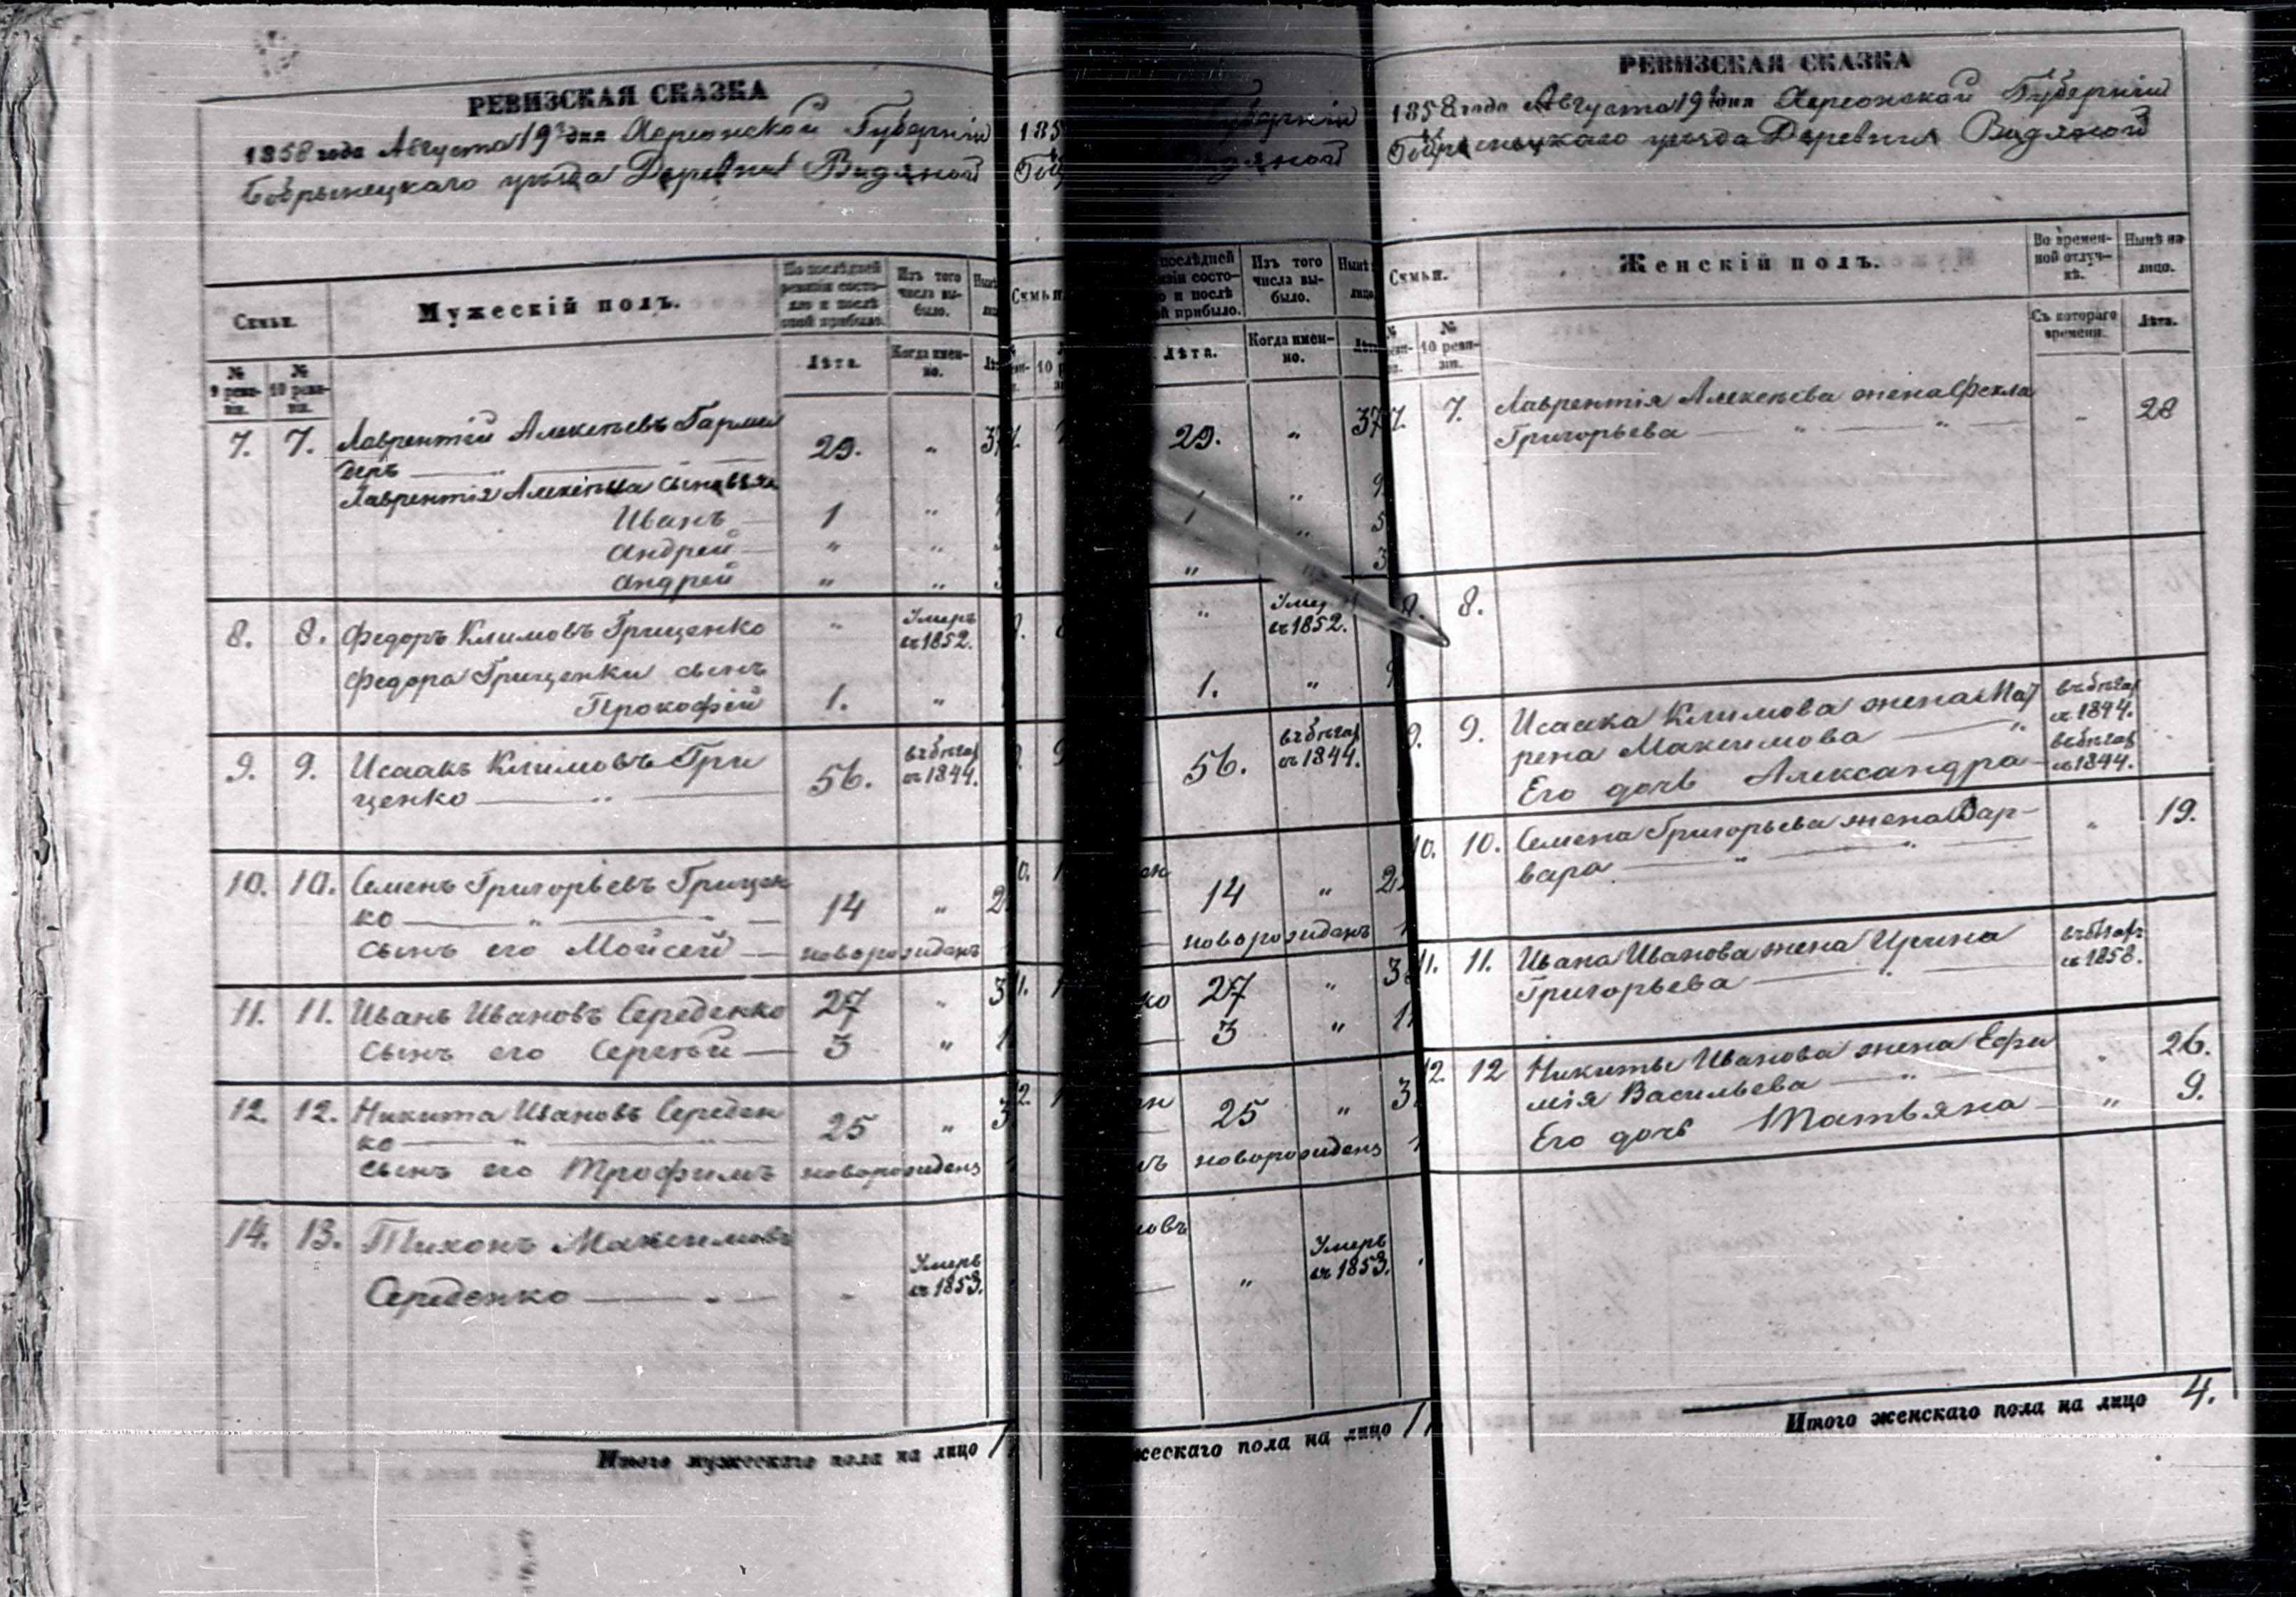 РЕВИЗСКАЯ СКАЗКА
1858 года Августа 19 дня Херсонской Губерніи
Бобрынецкаго уѣзда Деревни Водяной
Семьи.
Мужескій полъ.
По послѣдней ревизіи состояло и послѣ оной прибыло.
Изъ того числа выбыло.
№ 9 ревизіи.
№ 10 ревизіи.
Лѣта.
Когда именно.
7. 7. Лаврентій Алексѣевъ
29. „ 37
Лаврентія Алексѣева сыновья
Иванъ — 1 „
Андрей — „ „
Андрей „ „
8. 8. Федоръ Климовъ Гриценко „ Умеръ въ 1852.
Федора Гриценки сынъ
Прокофій 1. „
9. 9. Исаакъ Климовъ Гри
ценко — „ — 56. въ бѣгах съ 1844.
10. 10. Семенъ Григорьевъ Грицен
ко — „ — 14 „
сынъ его Мойсей — новорожденъ
11. 11. Иванъ Ивановъ Середенко 27 „
сынъ его Сергѣй — 3 „
12. 12. Никита Ивановъ Середен
ко — „ — 25 „
сынъ его Трофимъ новорожденъ
14. 13. Тихонъ Максимовъ
Середенко — „ — Умеръ въ 1853.
Итого мужескаго пола на лицо
185
Губерніи
Водяной
послѣдней
Изъ того числа выбыло.
й прибыло.
Лѣта.
Когда именно.
29. „ 37
1 „ 5
„ „ 3
„ Умер въ 1852.
1. „
56. въ бѣгах съ 1844.
14 „
новорожденъ
27 „
3 „
25 „
новорожденъ
„ Умеръ въ 1853.
жескаго пола на лицо
РЕВИЗСКАЯ СКАЗКА
1858 года Августа 19 дня Херсонской Губерніи
Бобрынецкаго уѣзда Деревни Водяной
Семьи.
Женскій полъ.
Во временной отлучкѣ.
Нынѣ на лицо.
№ 10 ревизіи.
Съ котораго времени.
Лѣта.
7. 7. Лаврентія Алексѣева жена Фекла
Григорьева — „ — „ — „ 28
8. 8.
9. 9. Исаака Климова жена Мат
рена Максимова — „ въ бѣгах съ 1844.
Его дочь Александра — въ бѣгах съ 1844.
10. 10. Семена Григорьева жена Вар-
вара — „ — „ — „ 19.
11. 11. Ивана Иванова жена Ирина
Григорьева — „ — въ бѣгах съ 1858.
12. 12 Никиты Иванова жена Ефи
мія Васильева — „ — „ 26.
Его дочь Татьяна — „ 9.
Итого женскаго пола на лицо 4.